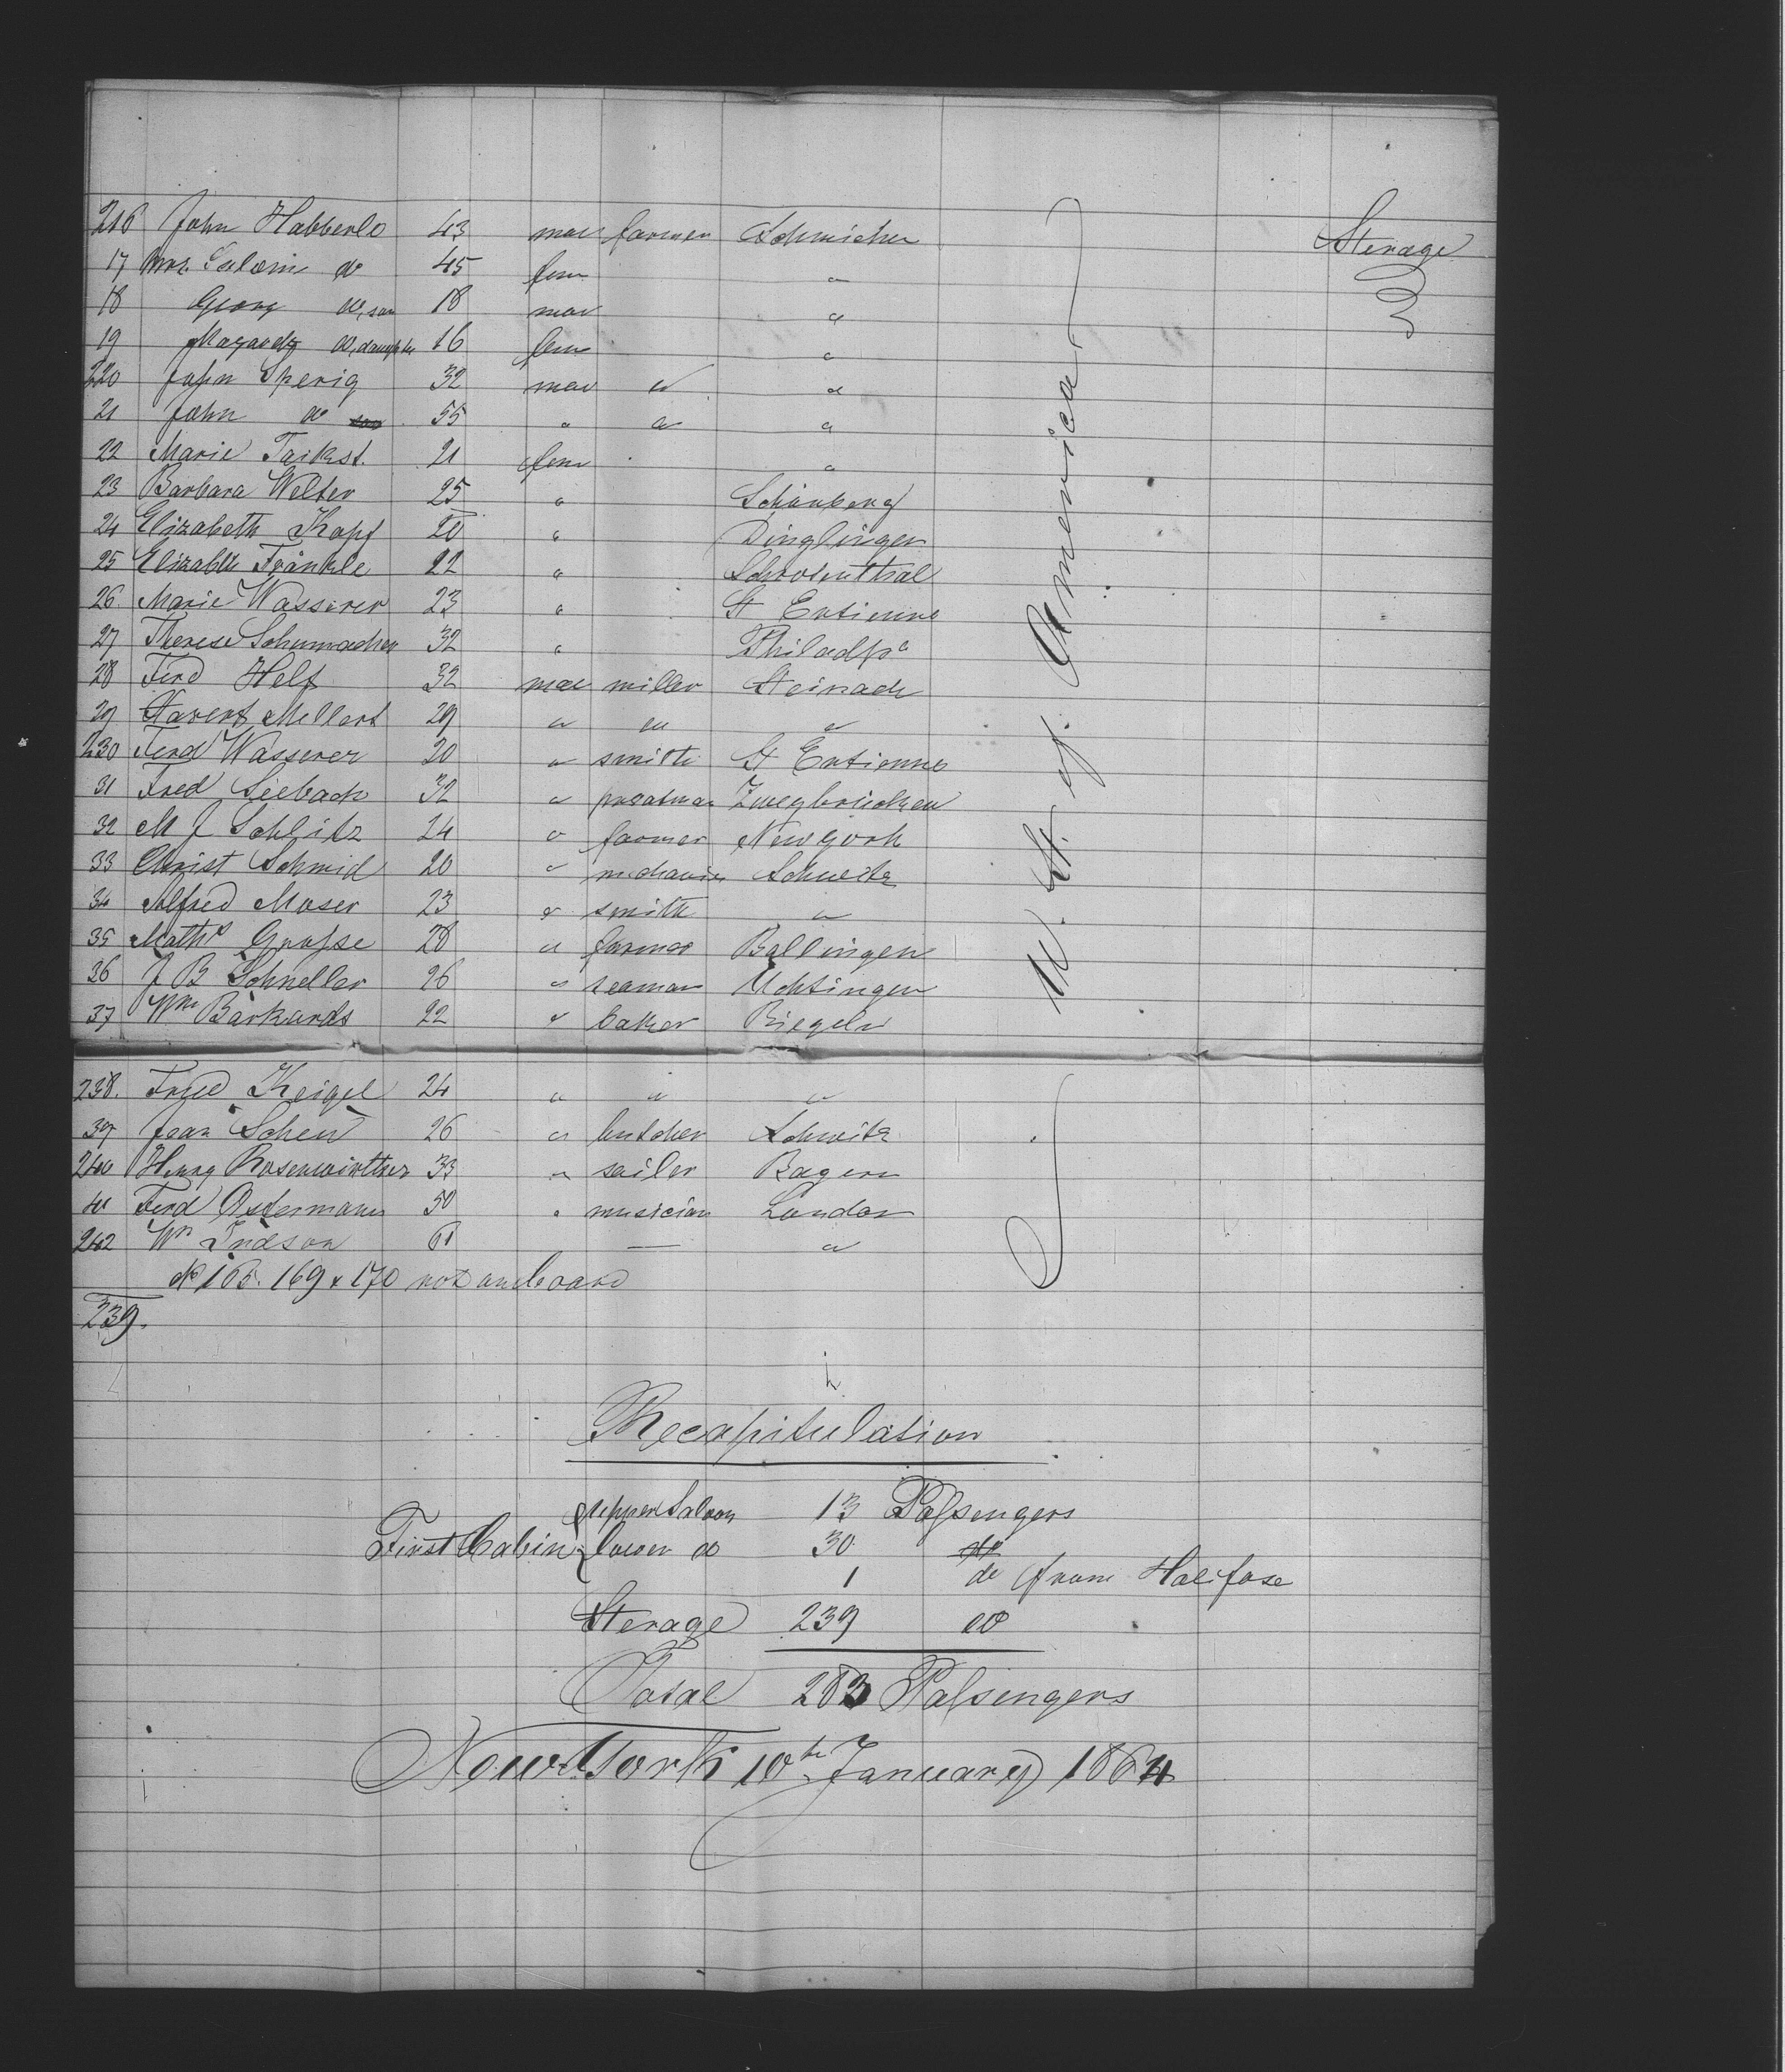 216 John Habberle 43 mae farmer Schmieher Sterage
17 Mrs. Salomi do 45 fem "
18 Georg do, son 18 mae "
19 do, daughter 16 fem "
220 John Sperig 32 mae " "
21 John do 55 " " "
22 Marie 21 fem "
23 Barbara Welter 25 " Schönberg
24 Elizabeth Kopf 20 " Dinglingen
25 Elizabth Fränkle 22 "
26 Marie Wasserer 23 " St Entienne
27 Therese Schumacher 32 " Philadpa
28 Ferd Helf 32 mae miller Steinach
29 Mellert 29 " " "
230 Ferd Wasserer 20 " smith St Entienne
31 Fred Seebach 32 " Zweybrücken
32 M J Schlitz 24 " farmer New York
33 Christ Schmid 20 " mechanic Schweitz
34 Alfred Moser 23 " smith "
35 Maths Grosse 28 " farmer Ballingen
36 J B Schneller 26 " seaman Uchtingen
37 Wm Barkards 22 " baker Riegeln
238. Fried Keigel 24 " " "
39 Jean Scheu 26 " butcher Schweitz
240 Henry Rosenwirther 33 " sailer Bayern
41 Ferd Ostermann 50 " musician London
242 Wm Judson 61 — "
U. St. of. America
No 165. 169 & 170 not on board
239.
Recapitulation
First Cabin { upper Saloon 13 Passengers
lower do 30 do
1 do from Halifax
Sterage 239 do
Total 283 Passengers
New York 10th January 1864